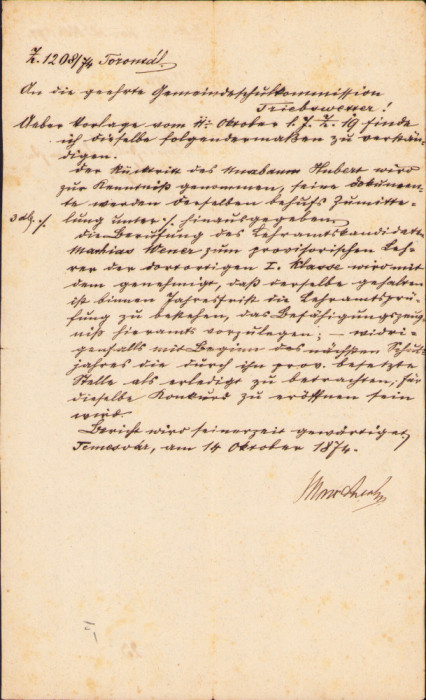 Z. 1208/74 Torontál.
An die geehrte Gemeindeschulkommission
Triebswetter!
Ueber Vorlage vom 4. Oktober l. J. Z. 19 finde
ich dieselbe folgendermaßen zu verstän-
digen.
Der Rücktritt des Hubert wird
zur Kenntniß genommen, seine Dokumen-
te werden derselben behufs Zumitte-
lung unter ·/. hinausgegeben.
3 ·/.
Die Berufung des Lehramtskandidaten
Mathias Wener zum provisorischen Leh-
rer der dortortigen I. Klasse wird mit
dem genehmigt, daß derselbe gehalten
ist binnen Jahresfrist die Lehramtsprü-
fung zu bestehen, das Befähigungszeug-
niß hieramts vorzulegen; – widri-
genfalls mit Beginn des nächsten Schul-
jahres die durch ihn prov. besetzte
Stelle als erledigt zu betrachten, für
dieselbe Konkurs zu eröffnen sein
wird.
Bericht wird seinerzeit gewärtiget.
Temesvár, am 14 Oktober 1874.